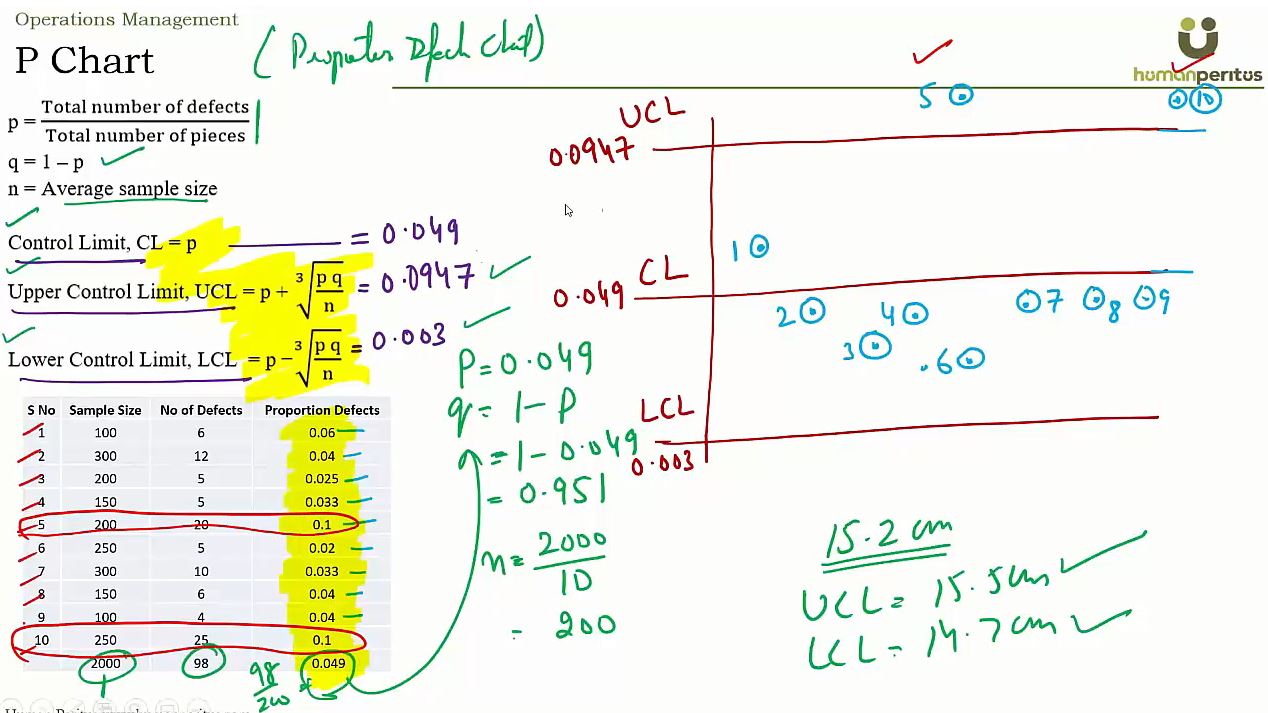 Operations Management
P Chart
(Proportion Defects Chart)
humanperitus
p = Total number of defects
Total number of pieces
q = 1 – p
n = Average sample size
Control Limit, CL = p = 0.049
Upper Control Limit, UCL = p + ∛(p q / n) = 0.0947
Lower Control Limit, LCL = p – ∛(p q / n) = 0.003
S No Sample Size No of Defects Proportion Defects
1 100 6 0.06
2 300 12 0.04
3 200 5 0.025
4 150 5 0.033
5 200 20 0.1
6 250 5 0.02
7 300 10 0.033
8 150 6 0.04
9 100 4 0.04
10 250 25 0.1
2000 98 0.049
98
200 =
P = 0.049
q = 1 - P
= 1 - 0.049
= 0.951
n = 2000
10
= 200
UCL
0.0947
CL
0.049
LCL
0.003
5
10
1
2
3
4
.6
7
8
9
15.2 cm
UCL = 15.5cm
LCL = 14.7cm